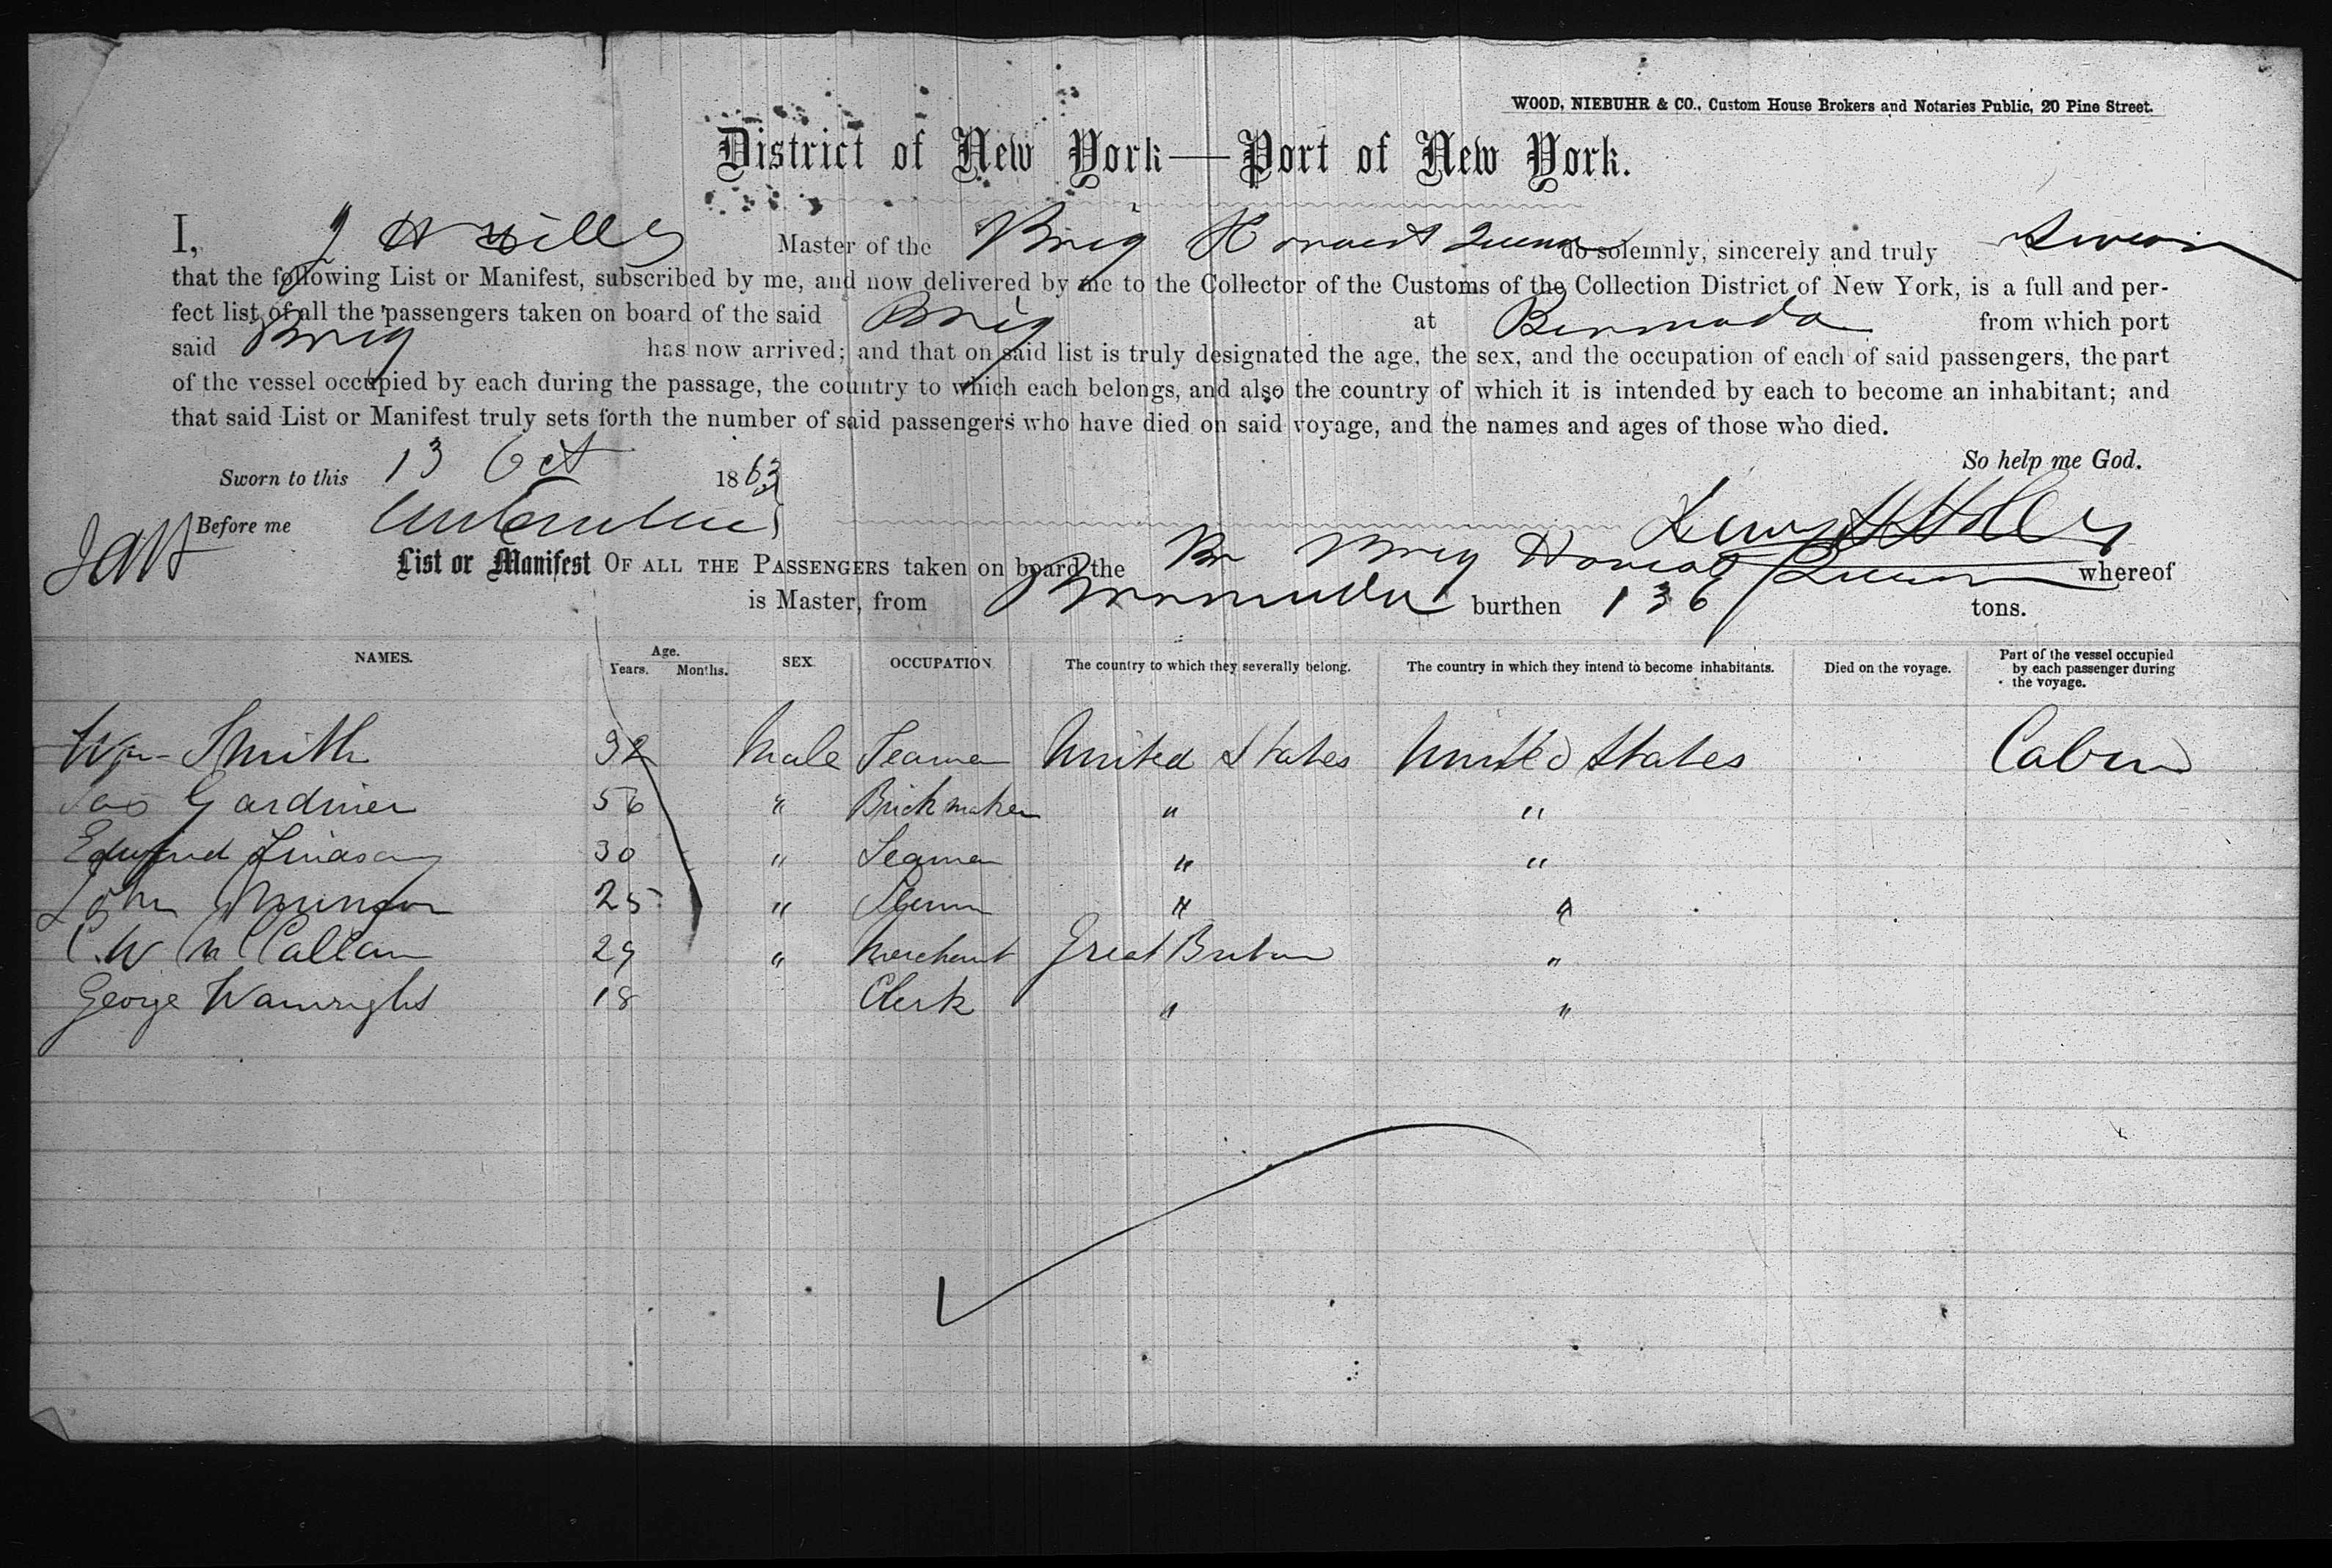 WOOD, NIEBUHR & CO., Custom House Brokers and Notaries Public, 20 Pine Street.
District of New York—Port of New York.
I, J H Master of the Brig Queen do solemnly, sincerely and truly Swear
that the following List or Manifest, subscribed by me, and now delivered by me to the Collector of the Customs of the Collection District of New York, is a full and per-
fect list of all the passengers taken on board of the said Brig at Bermuda from which port
said Brig has now arrived; and that on said list is truly designated the age, the sex, and the occupation of each of said passengers, the part
of the vessel occupied by each during the passage, the country to which each belongs, and also the country of which it is intended by each to become an inhabitant; and
that said List or Manifest truly sets forth the number of said passengers who have died on said voyage, and the names and ages of those who died.
So help me God.
Sworn to this 13 Oct 1863
Before me
List or Manifest OF ALL THE PASSENGERS taken on board the Br Brig Queen whereof
is Master, from Bermuda burthen 136 tons.
NAMES. Age. Years. Months. SEX. OCCUPATION The country to which they severally belong. The country in which they intend to become inhabitants. Died on the voyage. Part of the vessel occupied by each passenger during the voyage.
Wm Smith 32 Male Seaman United States United States Cabin
Jas Gardiner 56 " Brickmaker " "
Edward Lindsay 30 " Seaman " "
John Munson 25 " " "
C. W McCallan 29 " Merchant Great Britain "
George Wainright 18 Clerk " "